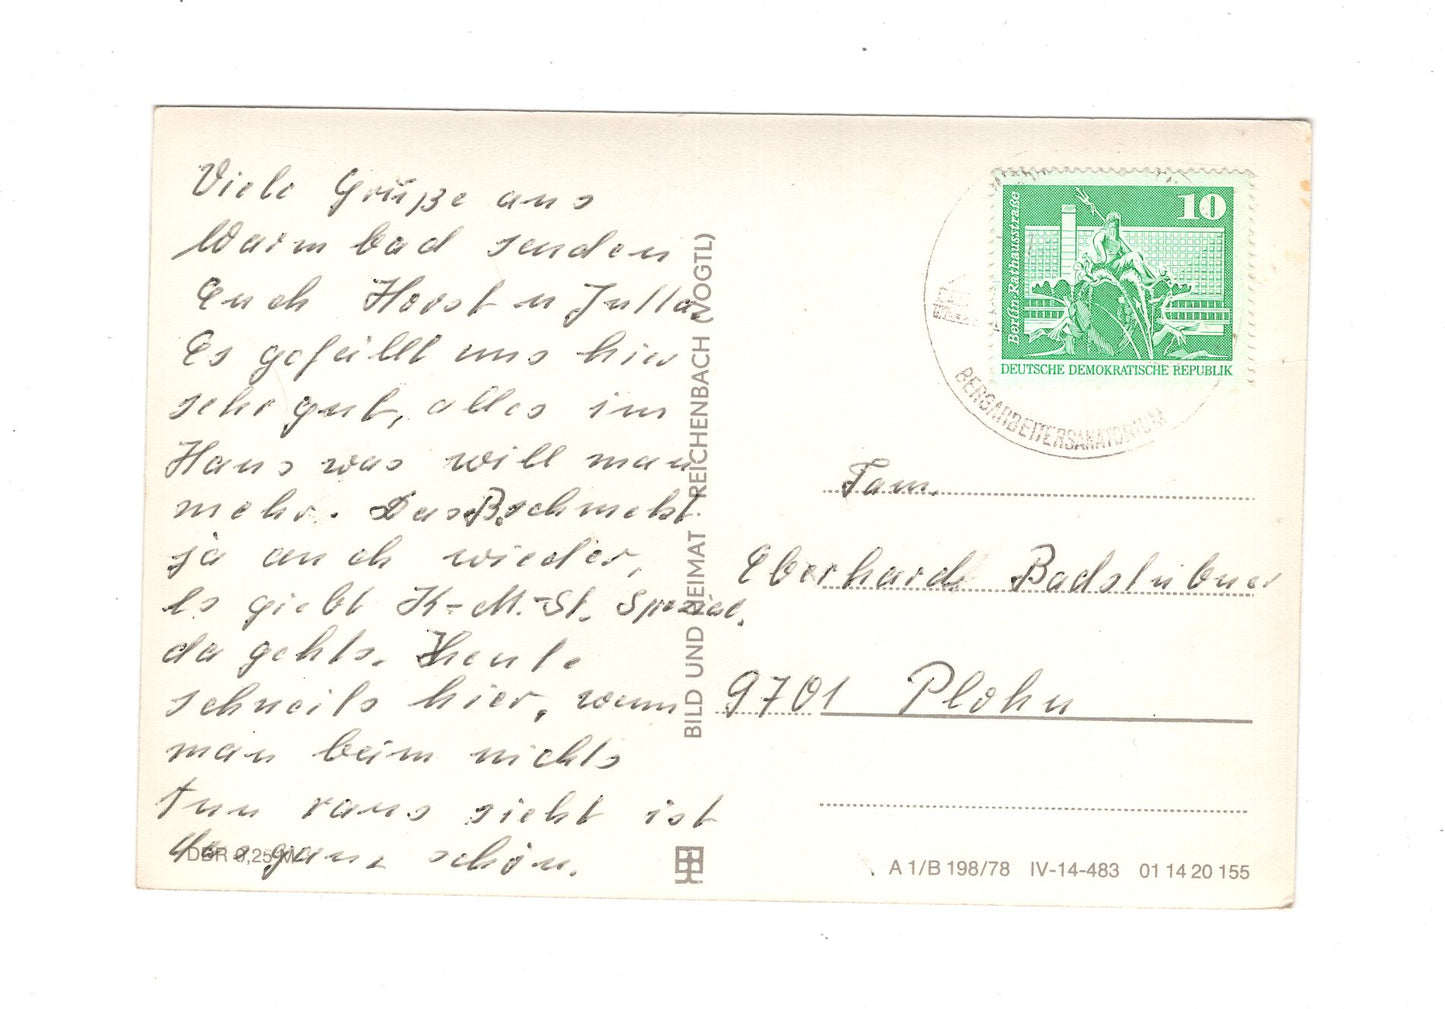 Viele Grüße aus
Warmbad senden
Euch Horst u Jutta
Es gefällt uns hier
sehr gut, alles im
Haus was will man
mehr. Das B. schmekt
ja auch wieder,
es giebt K-M.-St. Spezial.
da gehts. Heute
schneits hier, wenn
man beim nichts
tun raus sieht ist
das ganz schön.
DDR 0,25 M
BILD UND HEIMAT · REICHENBACH (VOGTL)
10
Berlin-Rathausstraße
DEUTSCHE DEMOKRATISCHE REPUBLIK
BERGARBEITERSANATORIUM
Fam.
Eberhard Badstübner
9701 Plohn
A 1/B 198/78 IV-14-483 01 14 20 155